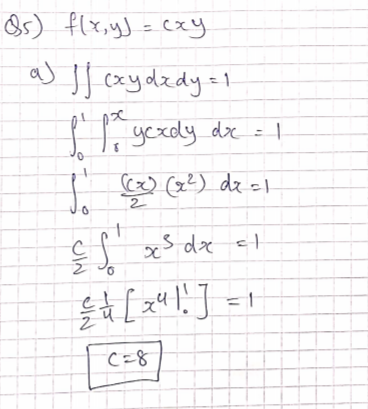 Q5) f(x,y) = cxy
a) ∫∫ cxy dx dy = 1
∫₀¹ ∫₀ˣ ycx dy dx = 1
∫₀¹ (cx)/2 (x²) dx = 1
c/2 ∫₀¹ x³ dx = 1
c/2 1/4 [x⁴|₀¹] = 1
c = 8